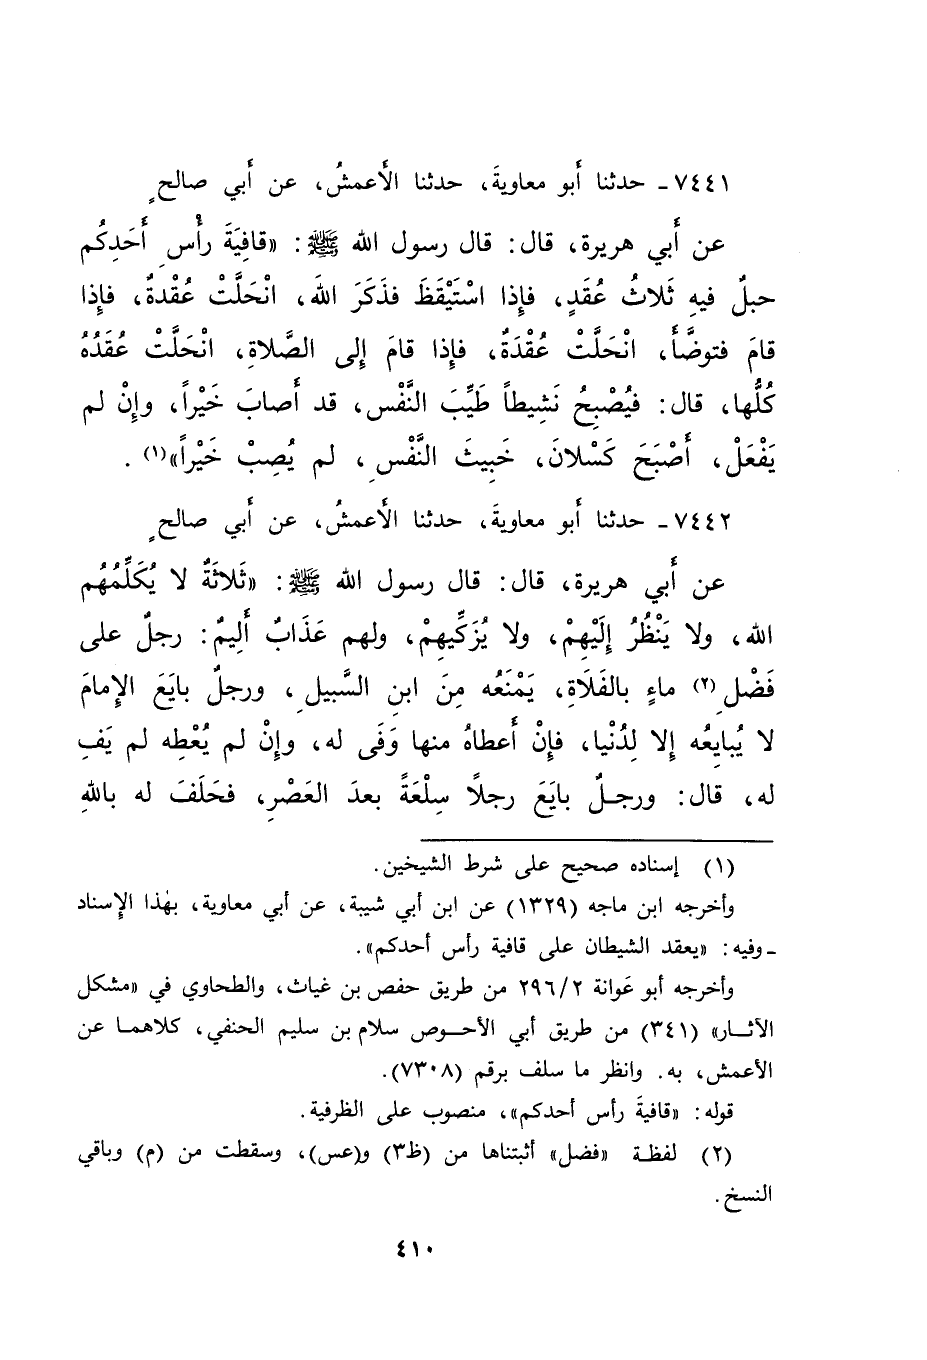 ٧٤٤١ـ حدثنا أَبو معاويةَ، حدثنا الأَعمشُ، عن أَبي صالحٍ
عن أَبي هريرة، قال: قال رسول الله ﷺ: «قافِيَةَ رأْسِ أَحَدِكُم
حبلٌ فيهِ ثَلاثُ عُقَدٍ، فإِذا اسْتَيْقَظَ فذَكَرَ اللهَ، انْحَلَّتْ عُقْدةٌ، فإِذا
قامَ فتوضَّأَ، انْحَلَّتْ عُقْدَةٌ، فإِذا قامَ إِلى الصَّلاةِ، انْحَلَّتْ عُقَدُهُ
كُلُّها، قال: فيُصْبِحُ نَشِيطاً طَيِّبَ النَّفْسِ، قد أَصابَ خَيْراً، وإِنْ لم
يَفْعَلْ، أَصْبَحَ كَسْلانَ، خَبِيثَ النَّفْسِ، لم يُصِبْ خَيْراً»(١).
٧٤٤٢ـ حدثنا أَبو معاويةَ، حدثنا الأَعمشُ، عن أَبي صالحٍ
عن أَبي هريرة، قال: قال رسول الله ﷺ: «ثَلاثَةٌ لا يُكَلِّمُهُم
الله، ولا يَنْظُرُ إِلَيْهِمْ، ولا يُزَكِّيهِمْ، ولهم عَذَابٌ أَلِيمٌ: رجلٌ على
فَضْلِ(٢) ماءٍ بالفَلَاةِ، يَمْنَعُه مِنَ ابنِ السَّبيلِ، ورجلٌ بايَعَ الإِمامَ
لا يُبايِعُه إِلا لِدُنْيا، فإِنْ أَعطاهُ منها وَفَى له، وإِنْ لم يُعْطِه لم يَفِ
له، قال: ورجلٌ بايَعَ رجلاً سِلْعَةً بعدَ العَصْرِ، فحَلَفَ له باللهِ
(١) إسناده صحيح على شرط الشيخين.
وأخرجه ابن ماجه (١٣٢٩) عن ابن أبي شيبة، عن أبي معاوية، بهٰذا الإسناد
ـ وفيه: «يعقد الشيطان على قافية رأس أحدكم».
وأخرجه أبو عَوانة ٢٩٦/٢ من طريق حفص بن غياث، والطحاوي في «مشكل
الآثار» (٣٤١) من طريق أبي الأحوص سلام بن سليم الحنفي، كلاهما عن
الأعمش، به. وانظر ما سلف برقم (٧٣٠٨).
قوله: «قافيةَ رأس أحدكم»، منصوب على الظرفية.
(٢) لفظة «فضل» أثبتناها من (ظ٣) و(عس)، وسقطت من (م) وباقي
النسخ.
٤١٠